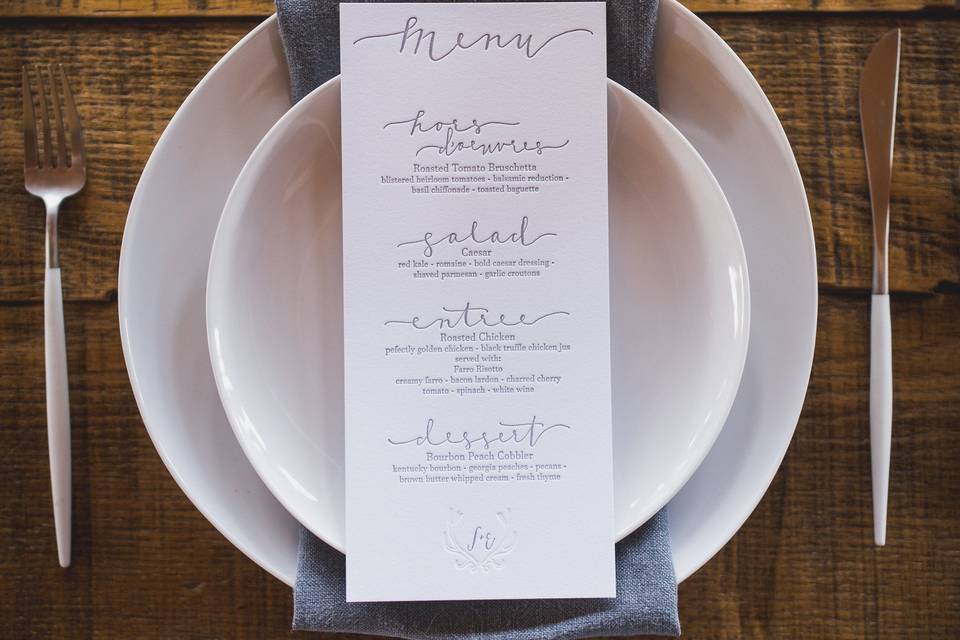 Menu
hors
d'oeuvres
Roasted Tomato Bruschetta
blistered heirloom tomatoes - balsamic reduction -
basil chiffonade - toasted baguette
salad
Caesar
red kale - romaine - bold caesar dressing -
shaved parmesan - garlic croutons
entree
Roasted Chicken
pefectly golden chicken - black truffle chicken jus
served with:
Farro Risotto
creamy farro - bacon lardon - charred cherry
tomato - spinach - white wine
dessert
Bourbon Peach Cobbler
kentucky bourbon - georgia peaches - pecans -
brown butter whipped cream - fresh thyme
S+E